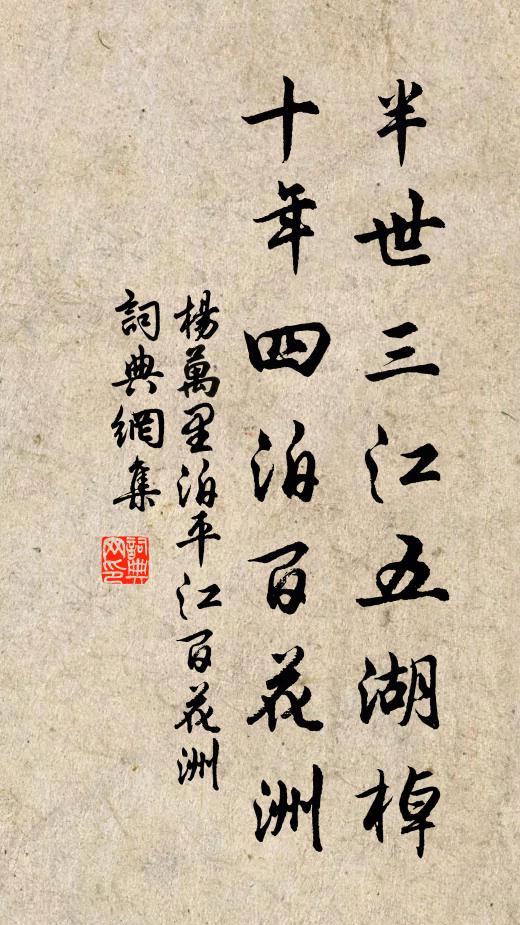 半世三江五湖棹
十年四泊百花洲
楊萬里泊平江百花洲
詞典網集
詞典網印